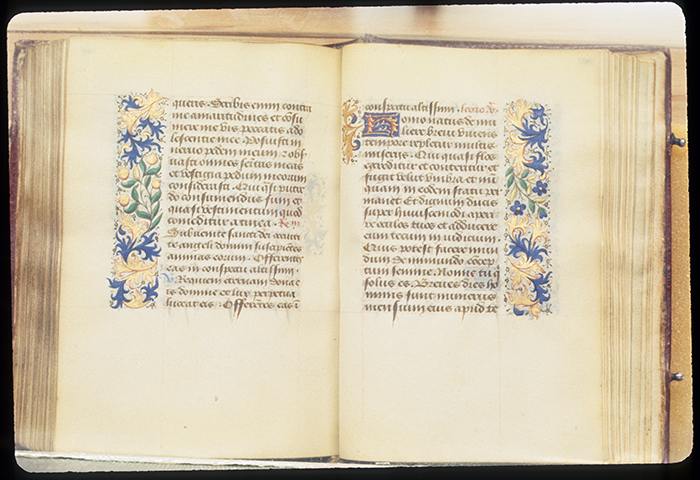 queris. Scribis enim contra
me amaritudines et cōsu
mere me vis peccatis ado
lescentie mee. Posuisti in
nervo pedem meum et obs
vasti omnes semitas meas
et vestigia pedum meorum
considerasti. Qui q̄si putre
do consumendus sum et
quasi vestimentum quod
comeditur a tinea.
Subvenite sancti dei occurri
te angeli domini suscipiētes
animas eorum. Offerentes
eas in conspectu altissimi.
Requiem eternam dona e
is domine et lux perpetua
luceat eis. Offerētes eas ī
conspectu altissimi. lectio v.
Homo natus de mu
liere brevi vivens
tempore repletur multis
miseriis. Qui quasi flos
egreditur et conteritur et
fugit velut umbra et nū
quam in eodem statu per
manet. Et dignum ducis
super huiuscemodi aperi
re oculos tuos et adducere
eum tecum in iudicium.
Quis potest facere mun
dum de immundo cōcep
tum semine. Nonne tu q̄
solus es. Breves dies ho
minis sunt numerus
mensium eius apud te